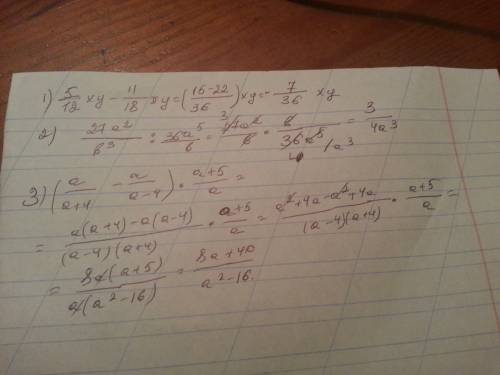 1) 5/12 xy - 11/18 xy = (15-22/36) xy = - 7/36 xy
2) 27a²/b³ : 36a⁵/b = 27a²/b · b/36a⁵ = 3/4a³
3) (a/a+4 - a/a-4) · a+5/a =
= a(a+4)-a(a-4)/(a-4)(a+4) · a+5/a = a²+4a-a²+4a/(a-4)(a+4) · a+5/a =
= 8a(a+5)/a(a²-16) = 8a+40/a²-16